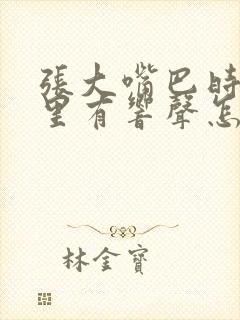 張大嘴巴時
里有響聲怎
林金寶